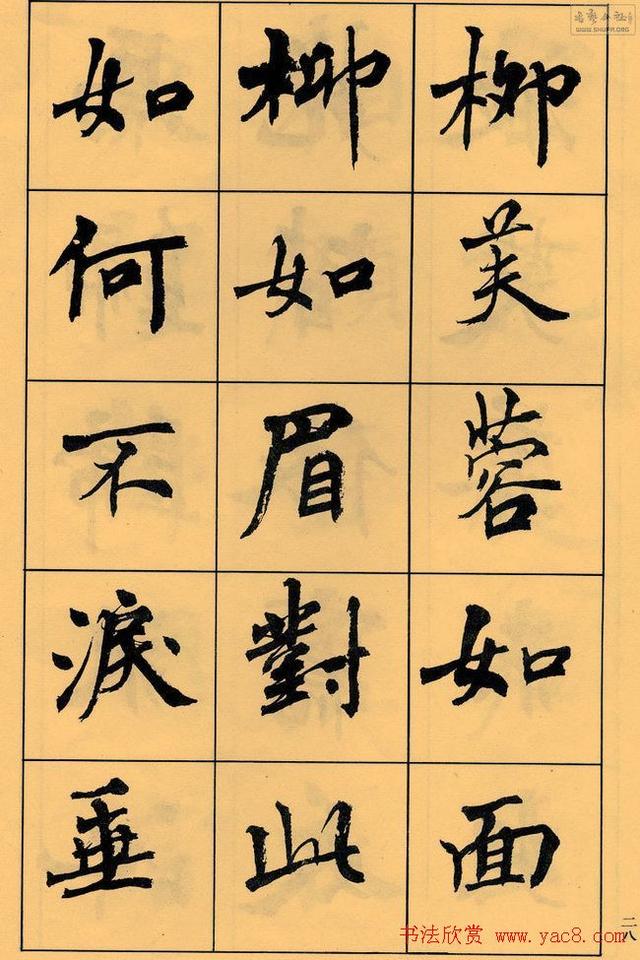 柳芙蓉如面
柳如眉對此
如何不淚垂
二八
书法欣赏 www.yac8.com
WWW.SHUFA.ORG